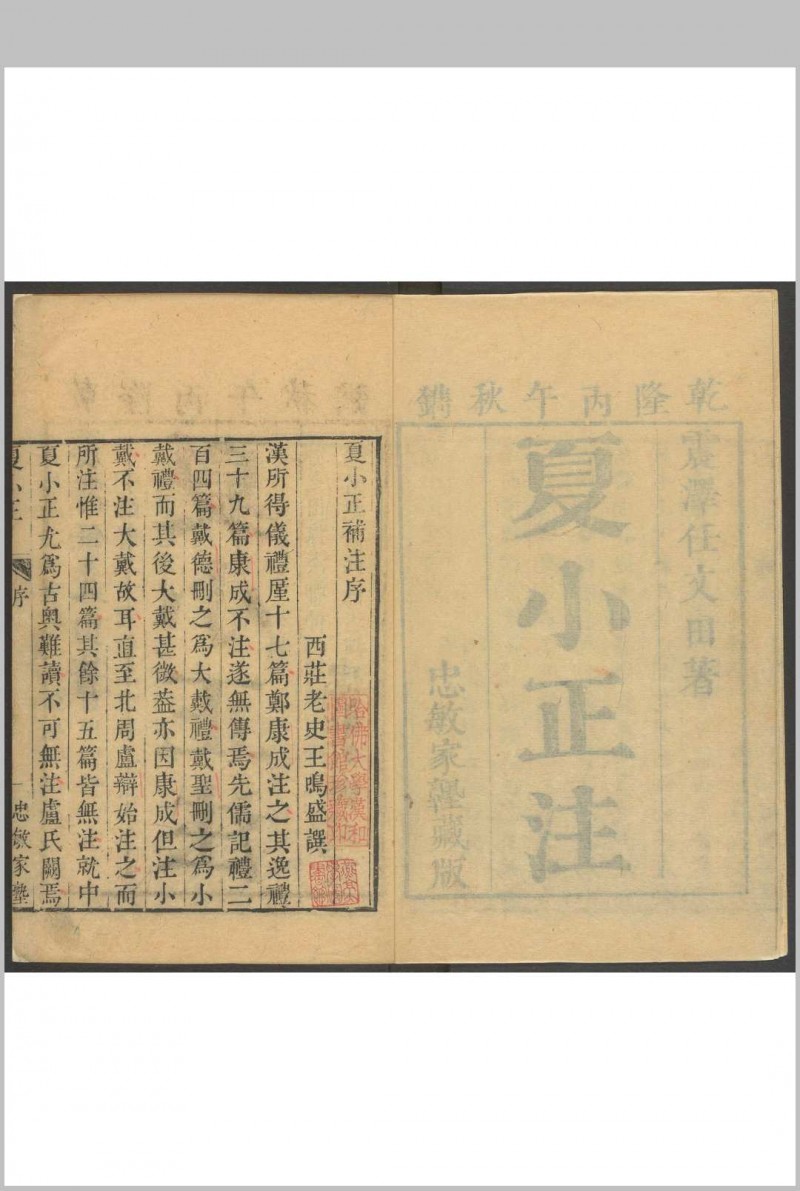 乾隆丙午秋鐫
震澤任文田著
夏小正注
忠敏家塾藏版
夏小正補注序
西莊老史王鳴盛譔
漢所得儀禮厪十七篇鄭康成注之其逸禮
三十九篇康成不注遂無傳焉先儒記禮二
百四篇戴德刪之為大戴禮戴聖刪之為小
戴禮而其後大戴甚微葢亦因康成但注小
戴不注大戴故耳直至北周盧辯始注之而
所注惟二十四篇其餘十五篇皆無注就中
夏小正尤為古奧難讀不可無注盧氏闕焉
夏小正
序
一
忠敏家塾
哈佛大學漢和圖書館珍藏印